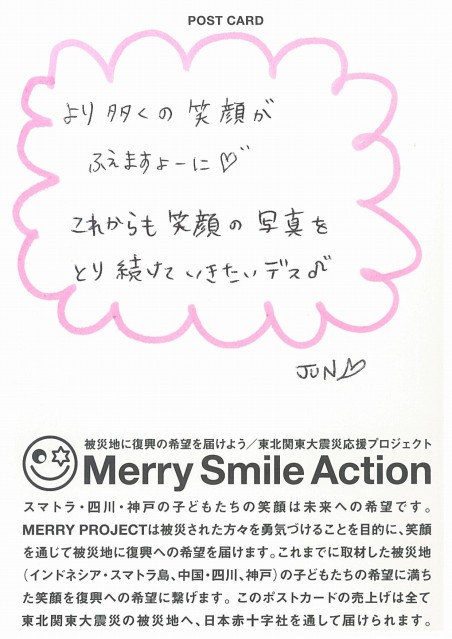 POST CARD
より多くの笑顔が
ふえますよーに♡
これからも笑顔の写真を
とり続けていきたいデス♂
JUN
被災地に復興の希望を届けよう／東北関東大震災応援プロジェクト
Merry Smile Action
スマトラ・四川・神戸の子どもたちの笑顔は未来への希望です。
MERRY PROJECTは被災された方々を勇気づけることを目的に、笑顔
を通じて被災地に復興への希望を届けます。これまでに取材した被災地
（インドネシア・スマトラ島、中国・四川、神戸）の子どもたちの希望に満ち
た笑顔を復興への希望に繋げます。このポストカードの売上げは全て
東北関東大震災の被災地へ、日本赤十字社を通して届けられます。